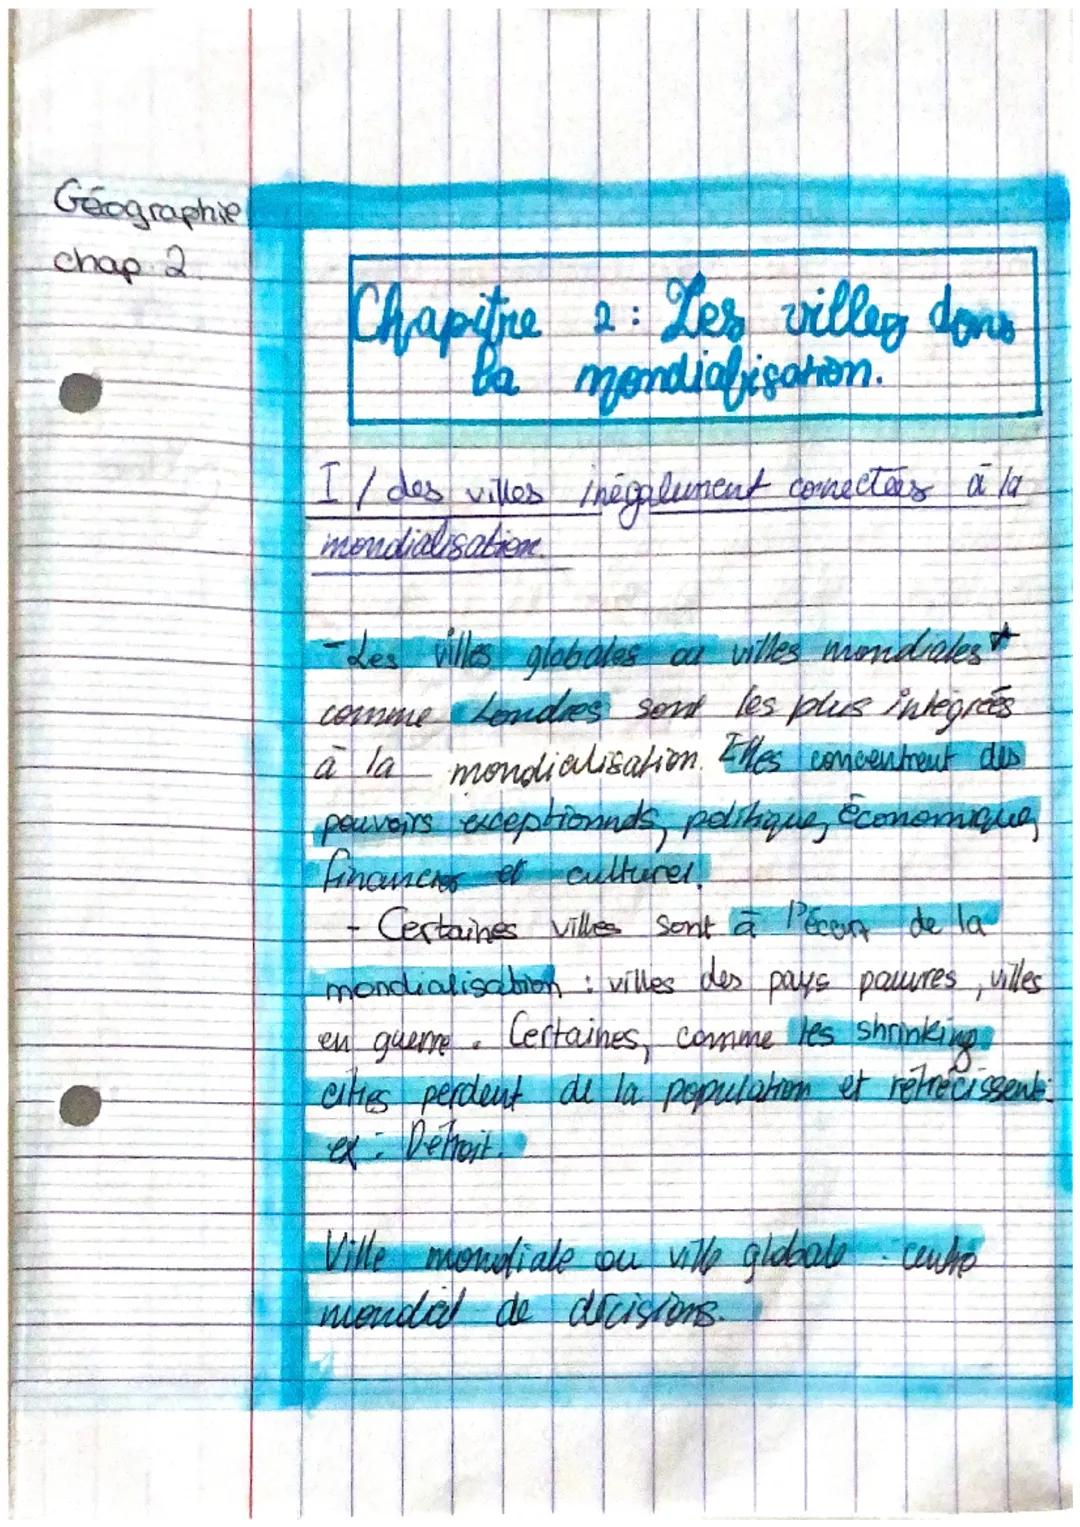 Géographie
chap. 2.
Chapitre 2: Les villes dans
la mondialisation.
I / des villes inégalement connectées à la
mondialisation
- Les villes globales ou villes mondiales*
comme Londres sont les plus intégrées
à la mondialisation. Elles concentrent des
pouvoirs exceptionnels, politique, économique,
financier et culturel.
- Certaines villes sont à l'écart de la
mondialisation : villes des pays pauvres, villes
en guerre. Certaines, comme les shrinking
cities perdent de la population et rétrécissent.
ex : Détroit.
Ville mondiale ou ville globale : centre
mondial de décisions.